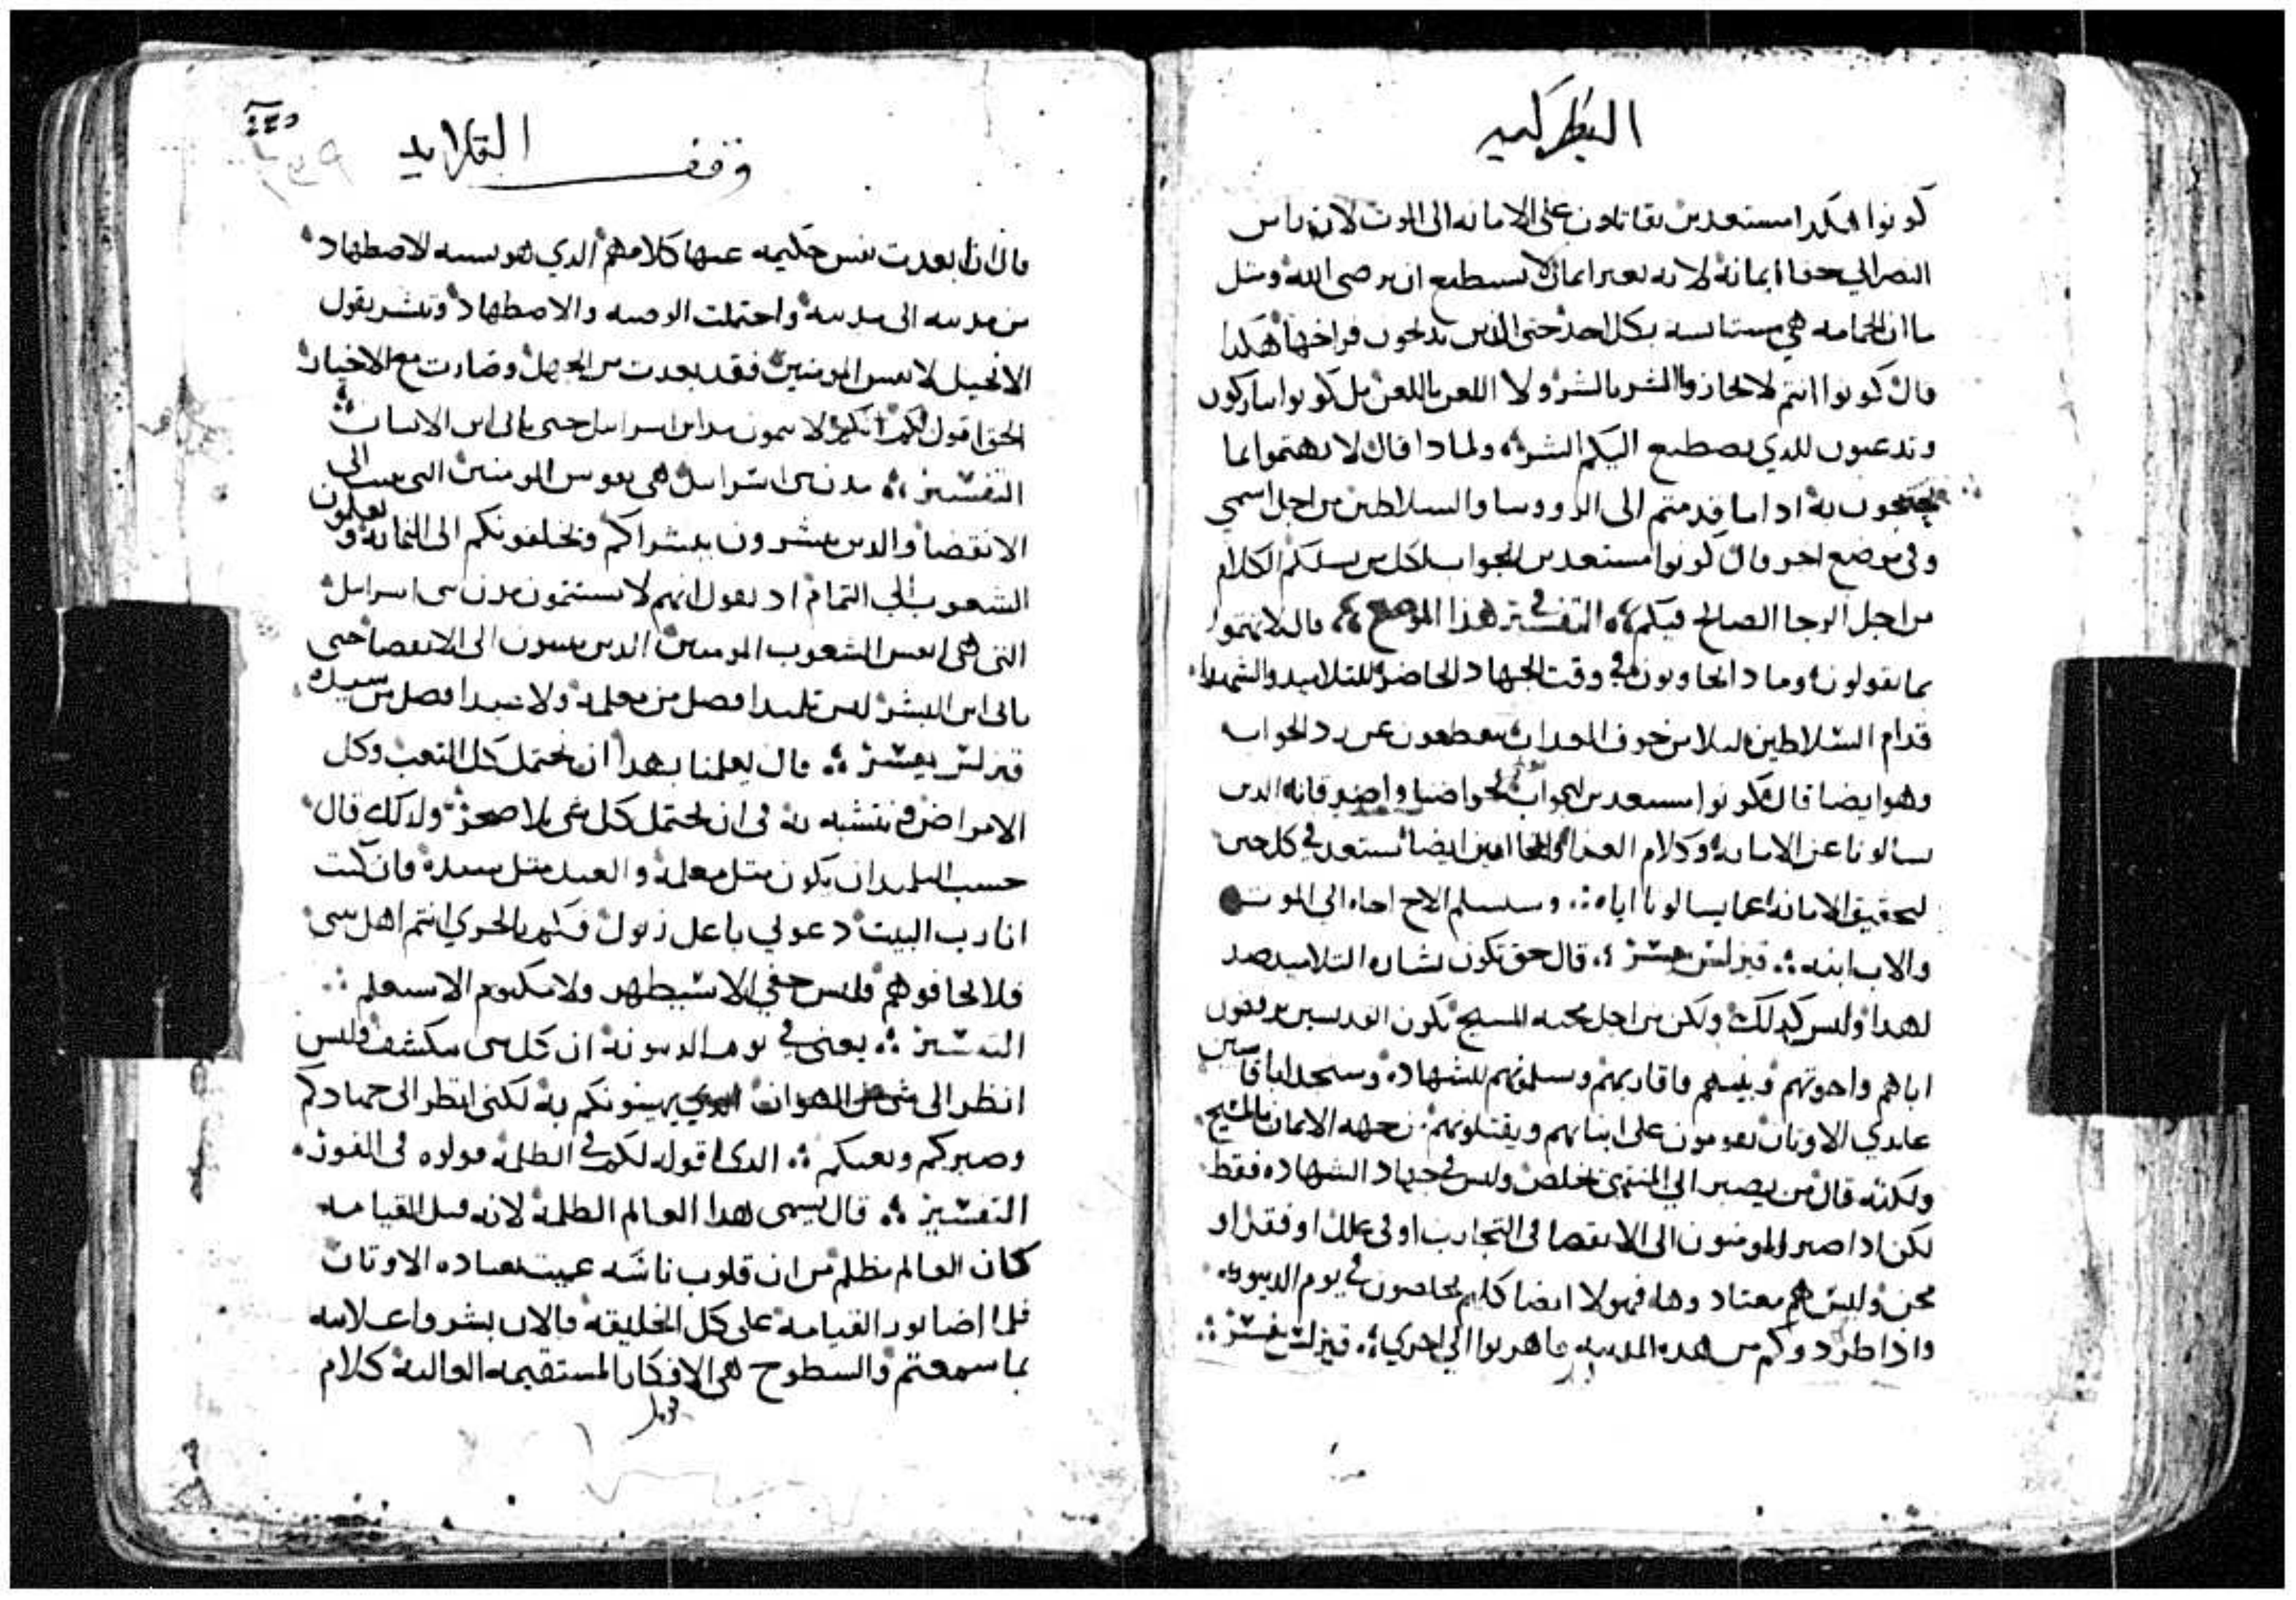 البطركيه
كونوا هكدا مستعدين تقاتلون على الامانه الى الموت لان باس
النصراني حقا ايمانه لانه بغير ايمان لا يستطيع ان يرضى الله ومثل
ما ان الحمامه هي مستانسه بكل احد حتى الذين يدبحون فراخها هكدا
قال كونوا انتم لا تجازوا الشر بالشر ولا اللعن باللعن بل كونوا تباركون
وتدعون للدي يصطنع اليكم الشر ولمادا قال لا تهتموا بما
تحتجون به ادا ما قدمتم الى الرووسا والسلاطين من اجل اسمي
وفي موضع اخر قال كونوا مستعدين لجواب لكل من يسلكم الكلام
من اجل الرجا الصالح فيكم التفسير في هذا الموضع قال لا تهتموا
بما تقولون وما دا تجاوبون في وقت الجهاد الحاضر للتلاميد والشهدا
قدام السلاطين ليلا من خوف العداب تنقطعون عن رد الجواب
وهو ايضا قال كونوا مستعدين لجواب
يسالونا عن الامانه وكلام العدا ايضا نستعد في كل حين
لتحقيق الامانه عما يسالونا اياه وسيسلم الاخ اخاه الى الموت
والاب ابنه قيرلس يفسر قال حق تكون بشاره التلاميد ضد
لهدا وليس كدلك ولكن من اجل محبه المسيح تكون القديسين يرفضون
اباهم واخوتهم وبنيهم واقاربهم وسلموهم للشهاده وستجد ابا قاسين
عابدي الاوتان يقومون على ابنايهم ويقتلونهم من جهه الايمان بالمسيح
ولكنه قال من يصبر الي المنتهى يخلص وليس في جهاد الشهاده فقط
لكن ادا صبر المومنون الى الانقضا في التجارب او في علل او فقر او
محن وليس هم معتادوها فهولا ايضا كلهم يخلصون في يوم الدينونه
واذا طردوكم من هده المدينه فاهربوا الي اخري قيرلس يفسر
وقف القلايه
قال ادا بعدت نفس حكيمه عنها كلامهم الدي هو نسبه لاضطهاد
من مدينه الى مدينه واحتملت الوصيه والاضطهاد وتبشر بقول
الانجيل لانفس المومنين فقد بعدت من الجهل وصارت مع الاخيار
الحق اقول لكم انكم لا تتمون مداين اسراييل حتى ياتي ابن الانسان
التفسير مدن بني اسراييل هي نفوس المومنين التي تنسا الى
الانقضا والدين يبشرون ببشراكم ويخلفونكم الى النهايه ويعلمون
الشعوب الي التمام اد يقول انهم لا يستتمون مدن بني اسراييل
التي هي انفس الشعوب المومنين الدين ينسون الى الانقضا حتى
ياتي ابن البشر ليس تلميدا افضل من معلمه ولا عبدا افضل من سيده
قيرلس يفسر قال يعلمنا بهدا ان نحتمل كل التعب وكل
الامراض وننتشبه به في ان نحتمل كل شي بلا ضجر ولدلك قال
حسب التلميد ان يكون متل معلمه والعبد متل سيده فان كنت
انا رب البيت دعوني باعل زبول فكم بالحري انتم اهل بيتي
فلا تخافوهم فليس خفي الا سيظهر ولا مكتوم الا سيعلم
التفسير يعنى في يوم الدينونه ان كل شي مكشف وليس
انظر الى شي من الهوان الدي يهينونكم به لكني انظر الى جهادكم
وصبركم وتعبكم الدي اقوله لكم في الظلمه قولوه في النور
التفسير قال يسمى هدا العالم الظلمه لانه قبل القيامه
كان العالم مظلم من ان قلوب ناسه عميت بعباده الاوتان
فلما اضا نور القيامه على كل الخليقه فالان بشروا علانيه
بما سمعتم والسطوح هي الافكار المستقيمه العاليه كلام